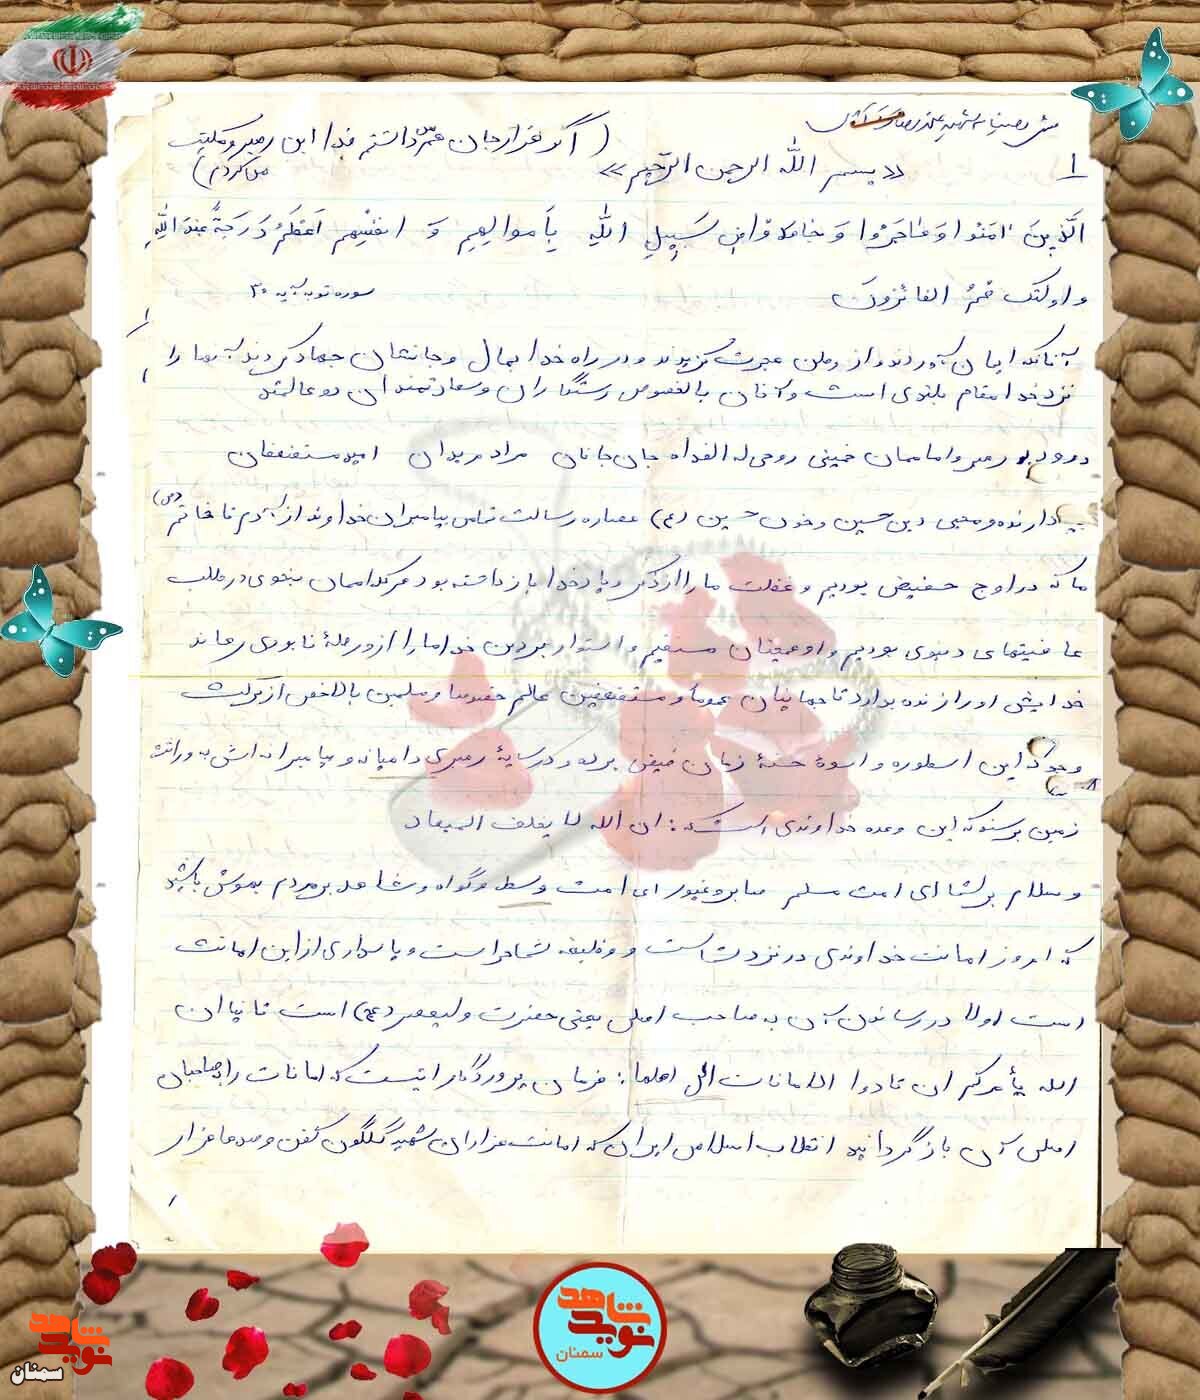 متن وصیتنامه شهید
( اگر هزار جان هم داشتم فدا این رهبر و مکتب
می کردم )
۱
« بسم الله الرحمن الرحیم »
اَلَّذینَ امَنُوا وَ هٰاجَرُوا وَ جٰاهَدُوا فی سَبیلِ اللهِ بِاَموالِهِم وَ انفُسِهِم اَعْظَمُ دَرَجَةً عِندَ اللهِ
و اولئک هُمُ الفائزونَ
سوره توبه آیه ۲۰
آنانکه ایمان آوردند و از وطن هجرت گزیدند و در راه خدا بمال و جانشان جهاد کردند آنها را
نزد خدا مقام بلندی است و آنان بالخصوص رستگاران و سعادتمندان دو عالمند
درود بر رهبر و اماممان خمینی روحی له الفداه جان جانان مراد مریدان امید مستضعفان
بپادارنده و محیی دین حسین و خون حسین (ع) عصاره رسالت تمامی پیامبران خداوند از آدم تا خاتم (ص)
ما که در اوج حضیض بودیم و غفلت ما را از ذکر و یاد خدا باز داشته بود هر کداممان بنحوی در طلب
عافیتهای دنیوی بودیم و او همچنان مستقیم و استوار بر دین خدا ما را از ورطهٔ نابودی رهاند
خدایش او را زنده بدارد تا جهانیان عموماً و مستضعفین عالم خصوصا و مسلمین بالاخص از برکت
وجود این اسطوره و اسوهٔ حسنهٔ زمان فیض برده و در سایهٔ رهبری داهیانه و پیامبرانه اش به وراثت
زمین برسند که این وعده خداوندی است که : ان الله لا یخلف المیعاد
و سلام بر شما ای امت مسلم صابر و غیور ای امت وسط و گواه و شاهد بر مردم بهوش باشید
که امروز امانت خداوندی در نزد شماست و وظیفه شما حراست و پاسداری از این امانت
است اولا در رساندن آن به صاحب اصلی یعنی حضرت ولیعصر (عج) است ثانیا ان
الله یأمرکم ان تادوا الامانات الی اهلها : فرمان پروردگار اینست که امانات را به صاحبان
اصلی آن باز گردانید انقلاب اسلامی ایران که امانت هزاران شهید گلگون کفن و صدها هزار
شاهد
نوید
سمنان
شاهد
نوید
سمنان